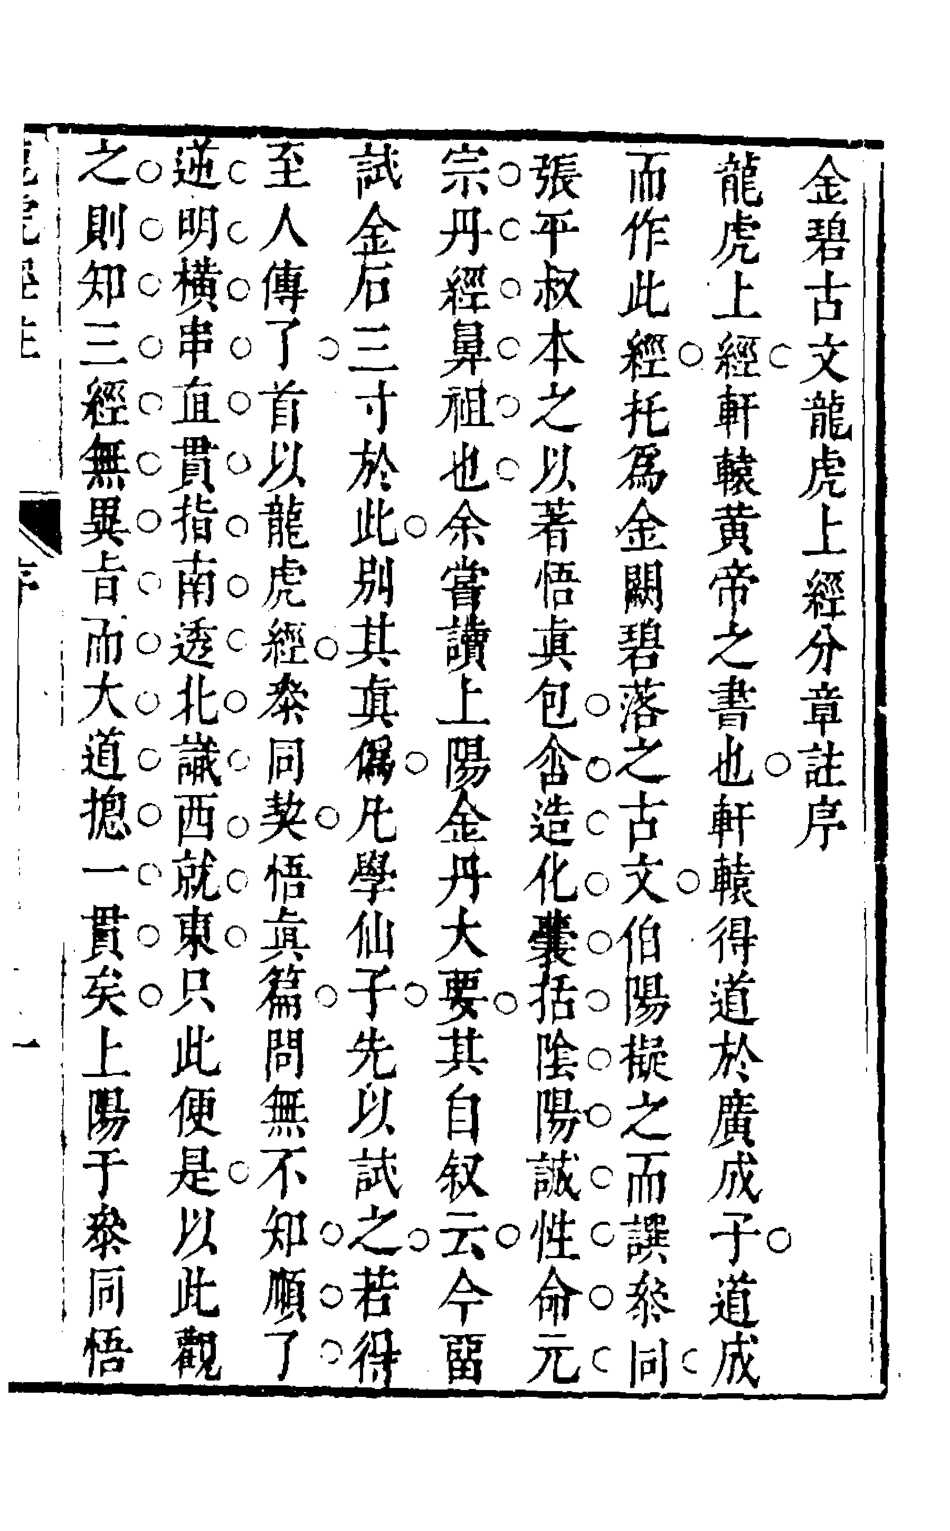 金碧古文龍虎上經分章註序
龍虎上經軒轅黃帝之書也軒轅得道於廣成子道成
而作此經托爲金闕碧落之古文伯陽擬之而譔叅同
張平叔本之以著悟眞包含造化囊括陰陽誠性命元
宗丹經鼻祖也余嘗讀上陽金丹大要其自叙云今留
試金石三寸於此別其眞僞凡學仙子先以試之若得
至人傳了首以龍虎經叅同契悟眞篇問無不知順了
逆明橫串直貫指南透北識西就東只此便是以此觀
之則知三經無異旨而大道摠一貫矣上陽于叅同悟
龍虎經註
序
一